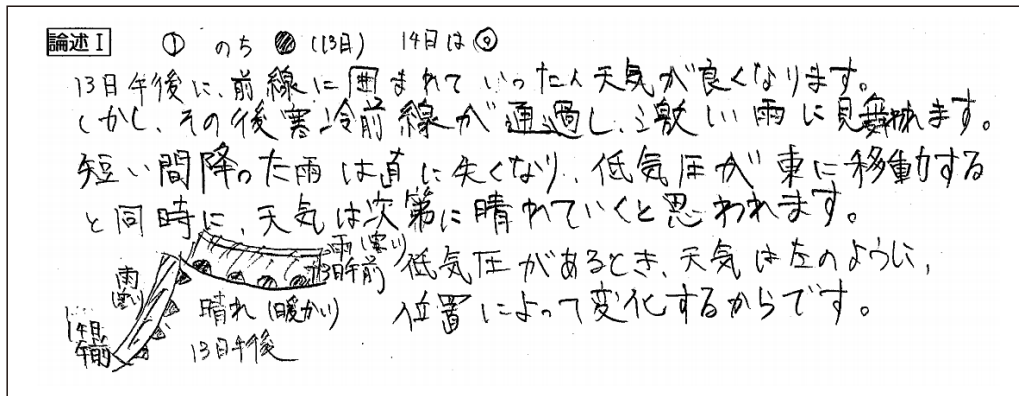 論述Ⅰ ① のち ● (13日) 14日は ◎
13日午後に、前線に囲まれていったん天気が良くなります。
しかし、その後寒冷前線が通過し、激しい雨に見舞われます。
短い間降った雨は直に失くなり、低気圧が東に移動する
と同時に、天気は次第に晴れていくと思われます。
雨(寒い)
13日午前
低気圧があるとき、天気は左のように、
雨
晴れ(暖かい)
位置によって変化するからです。
14日
午前
13日午後